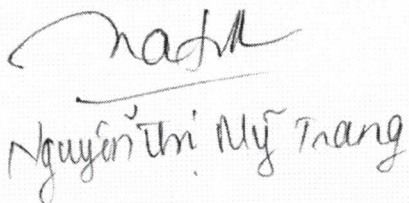 Nguyễn Thị Mỹ Trang